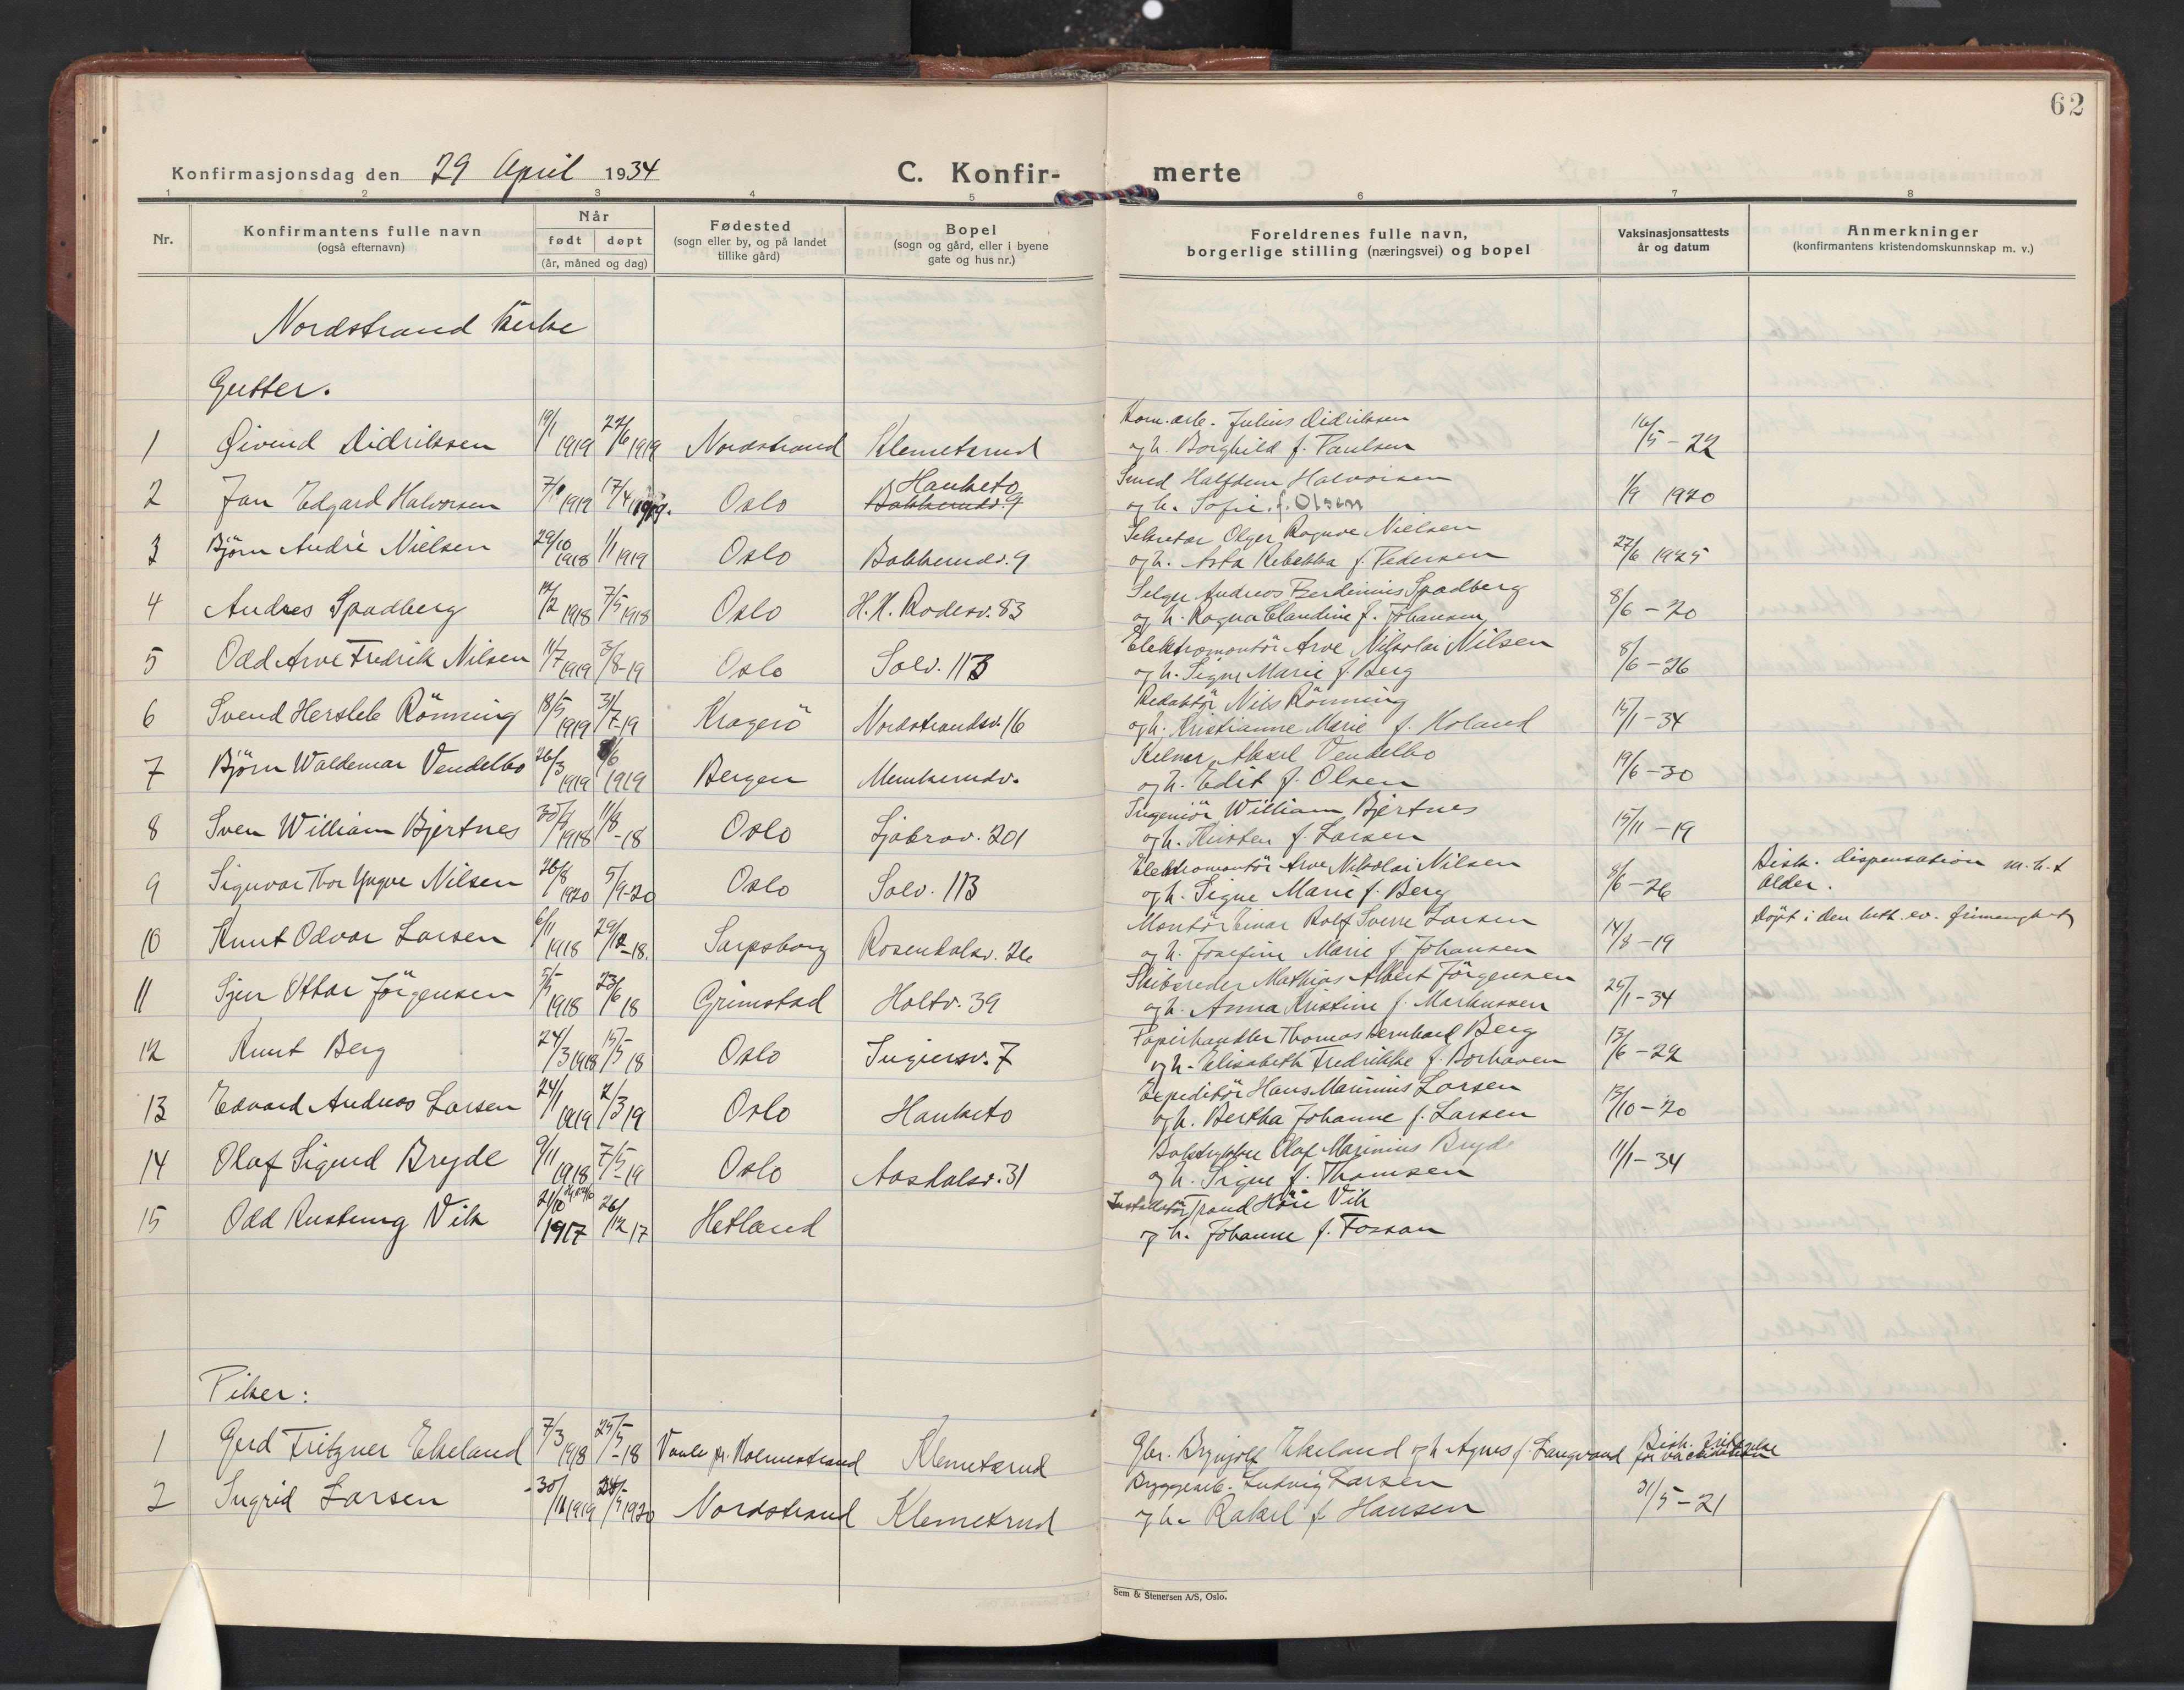 62
Konfirmasjonsdag den 29 April 1934
C. Konfir- merte
1 2 3 4 5 6 7 8
Nr. Konfirmantens fulle navn (også efternavn) Når født døpt (år, måned og dag) Fødested (sogn eller by, og på landet tillike gård) Bopel (sogn og gård, eller i byene gate og hus nr.) Foreldrenes fulle navn, borgerlige stilling (næringsvei) og bopel Vaksinasjonsattests år og datum Anmerkninger (konfirmantens kristendomskunnskap m. v.)
Nordstrand kirke
Gutter.
1 Øivind Didriksen 19/1 1919 22/6 1919 Nordstrand Klemetsrud Kom.arb. Julius Didriksen
og h. Borghild f. Paulsen 16/5 - 22
2 Jan Edgard Halvorsen 1919 17/4 1919. Oslo Hauketo
Bakkerudv. 9 Smed Halfdan Halvorsen
og h. Sofie f. Olsen 1/9 1920
3 Björn André Nielsen 29/10 1918 1/1 1919 Oslo Bakkerudv. 9 Sekretær Olger Ragnve Nielsen
og h. Asta Rebekka f. Pedersen 27/6 1925
4 Andres Spadberg 12/2 1918 7/5 1918 Oslo H. H. Rodesv. 83 Selger Andreas Ferdinius Spadberg
og h. Ragna Claudine f. Johansen 8/6 - 20
5 Odd Arve Fredrik Nilsen 11/7 1919 3/8-19 Oslo Solv. 113 Elektromontör Arve Nikolai Nilsen
og h. Signe Marie f. Berg 8/6 - 26
6 Svend Hersleb Rönning 18/5 1919 31/7-19 Kragerö Nordstrandsv. 16 Redaktör Nils Rönning
og h. Kristianne Marie f. Holand 15/1 - 34
7 Björn Waldemar Vendelbo 26/3 1919 /6 1919 Bergen Munkerudv. Kelner Aksel Vendelbo
og h. Edit f. Olsen 19/6 - 30
8 Sven William Bjertnes 1918 11/8-18 Oslo Ljabrov. 201 Ingeniör William Bjertnes
og h. Kirsten f. Larsen 15/11 - 19
9 Sigurvar Thor Yngve Nilsen 26/8 1920 5/9-20 Oslo Solv. 113 Elektromontör Arve Nikolai Nilsen
og h. Signe Marie f. Berg 8/6 - 26 Bisk. dispensation m. h. t
alder.
10 Knut Odvar Larsen 6/11 1918 29/12-18. Sarpsborg Rosendalsv. 26 Montör Einar Rolf Sverre Larsen
og h. Josefine Marie f. Johansen 14/8 - 19 Döpt i den luth. ev. frimenighet
11 Sjur Ottar Jörgensen 5/5 1918 23/6 18 Grimstad Holtv. 39 Skibsreder Mathias Albert Jörgensen
og h. Anna Kristine f. Markussen 25/1 - 34
12 Knut Berg 24/3 1918 15/5 18 Oslo Ingiersv. 7 Papirhandler Thomas Bernhard Berg
og h. Elisabeth Fredrikke f. Borhaven 13/6 - 22
13 Edvard Andreas Larsen 24/1 1919 2/3 19 Oslo Hauketo Expeditör Hans Marinius Larsen
og h. Bertha Johanne f. Larsen 13/10 - 20
14 Olaf Sigurd Bryde 9/11 1918 7/5-19 Oslo Aasdalsv. 31 Boktrykker Olaf Marinius Bryde
og h. Signe f. Thomsen 11/1 - 34
15 Odd Rustung Vik 21/10 1917 26/12 17 Hetland Installatör Trond Höie Vik
og h. Johanne f. Fossan
Piker:
1 Gerd Fritzner Ekeland 7/3 1918 25/5-18 Vaale pr. Holmestrand Klemetsrud Gbr. Brynjolf Ekeland og h Agnes f. Langvand Bisk. fritagelse
for vaccination
2 Ingrid Larsen 30/11 1919 1920 Nordstrand Klemetsrud Byggearb. Ludvig Larsen
og h. Rakel f. Hansen 31/5 - 21
Sem & Stenersen A/S, Oslo.